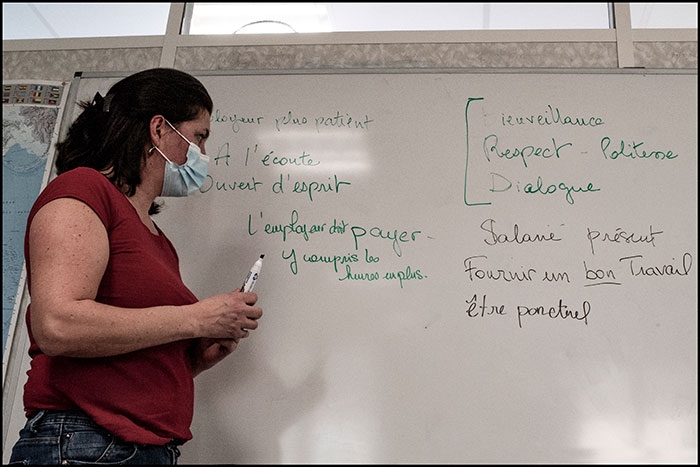 plus patient
A l'écoute
Ouvert d'esprit
L'employeur doit payer -
y compris les
heures en plus.
Bienveillance
Respect - Politesse
Dialogue
Salarié présent
Fournir un bon Travail
être ponctuel